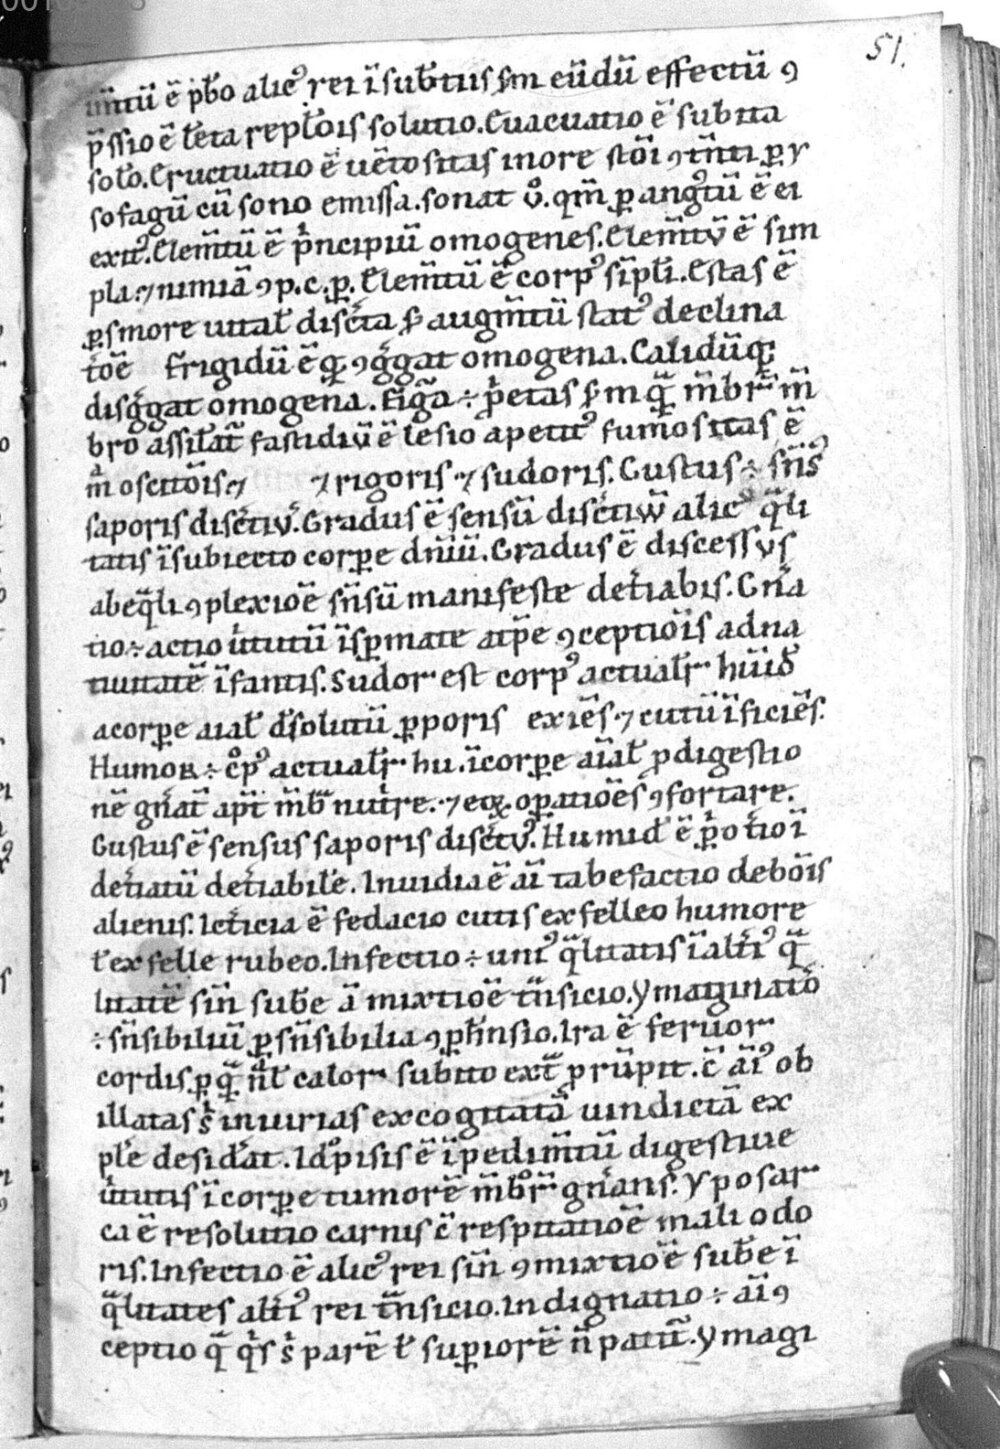 51.
ē ꝓb̄o alicꝰ rei ī subt̄iis s̄m eūdū effectū ꝯ
p̄ssio ē l̄eta repl̄ois solutio. Euacuatio ē subita
sol̄o. Eructuatio ē uētositas in ore stōi ꝯtn̄ti ꝑ y
sofagū cū sono emissa. sonat v̊. qm̄ ꝑ angͥtū ē ei
exitꝰ. Elem̄tū ē pͥncipiū omogenes. Elem̄tv̄ ē sim
pla ⁊ nimiā ꝯp.c.ꝑ. Elem̄tū ē corpꝰ sīpl̄i. Estas ē
uital̄ discͥta augm̄tū statꝰ declina
tōē frigidū ē qͥ ꝯgͥgat omogena. Calidū qͥ
disgͥgat omogena. Figͣa ÷ pͥetas m̄br̄ m̄
bro assil̄at̄ fastidiū ē lesio apetitꝰ fumositas ē
mͣ oscitōis ⁊ ⁊ rigoris ⁊ sudoris. Gustus ÷ sn̄sꝰ
saporis discͥtivꝰ. Gradus ē sensū discͥtiw̄ alicꝰ qͣli
tatis ī subiecto corꝑe dn̄iū. Gradus ē discessvs
ab eqͣli ꝯplexioē sn̄sū manifeste detͥiabis. Gn̄a
tio ÷ actio ūtutū ī sꝑmate atp̄e ꝯceptiōis ad na
tiuitatē īfantis. Sudor est corpꝰ actual̄r hūiđ
a corꝑe aial̄ dsolutū ꝑ poris exiēs ⁊ cutū īficiēs.
Humor ÷ cͦpꝰ actual̄r hu. ī corꝑe aīal̄ ꝑ digestio
nē gn̄at̄ apt̄ m̄b̄ nutͥre. ⁊ eoꝝ oꝑatioēs ꝯfortare.
Gustus ē sensus saporis discͥtvꝰ. Humid̄ ē
detͥiatū detͥiabile. Inuidia ē aī tabefactio de bōis
alienis. Ictͥicia ē fedacio cutis ex felleo humore
l̄ ex felle rubeo. Infectio ÷ unīꝰ qͣlitatis ī altͥiꝰ qͣ
litatē sīn sub̄e ā mixtioē tn̄sicio. Ymaginatō
÷ sn̄sibiliū ꝑ sn̄sibilia ꝯpͥhn̄sio. Ira ē feruor
cordis. ꝑ qͣ n̄l̄ calor subito ext̄ ꝓrūpit. c̄ aīꝰ ob
illatas sͥ iniurias excogitatā uindictā ex
pl̄e desid̄at. Idͦpisis ē īpedim̄tū digestiue
ūtutis ī corꝑe tumorē m̄bͦr̄ gn̄ans. Yposar
ca ē resolutio carnis c̄ respiratioē mali odo
ris. Infectio ē alicꝰ rei sīn ꝯmixtioē sub̄e ī
qͣlitates altͥiꝰ rei tn̄sicio. Indignatio ÷ aī ꝯ
ceptio qͣ qͥs sͥ parē l̄ suꝑiorē n̄ patit̄. Ymagi